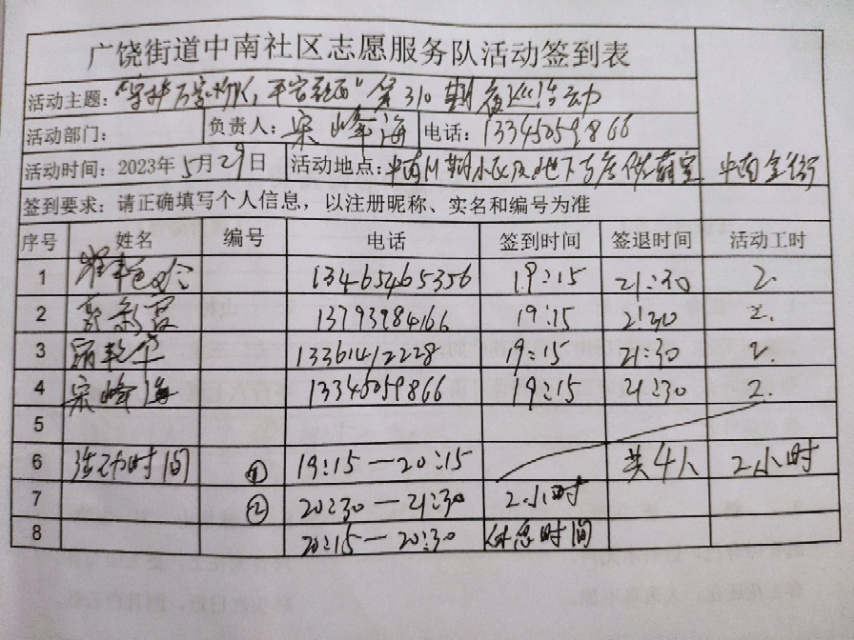 广饶街道中南社区志愿服务队活动签到表
活动主题：“守护万家灯火，平安社区”第310期夜巡活动
活动部门： 负责人：宋峰海 电话：13345059866
活动时间：2023年5月29日 活动地点：中南川期小区及地下车库储藏室 中南金街
签到要求：请正确填写个人信息，以注册昵称、实名和编号为准
序号 姓名 编号 电话 签到时间 签退时间 活动工时
1 13465465356 19:15 21:30 2.
2 13793984166 19:15 2:30 2.
3 13361412228 19:15 21:30 2.
4 宋峰海 13345059866 19:15 21:30 2.
5
6 活动时间 ① 19:15—20:15 共4人 2小时
7 ② 20:30—21:30 2小时
8 20:15—20:30 休息时间